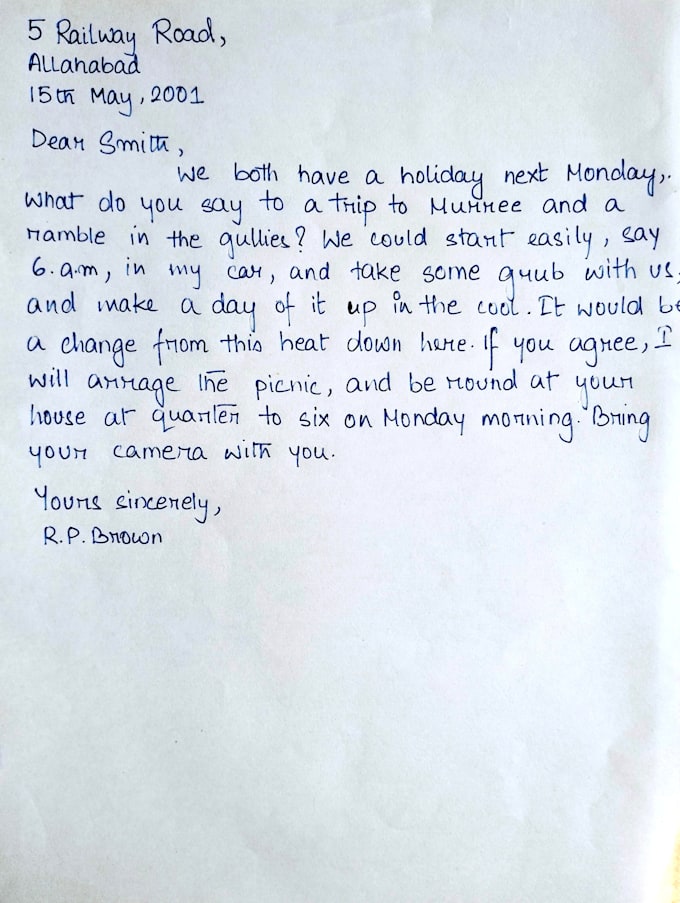 5 Railway Road,
Allahabad
15th May, 2001
Dear Smith,
We both have a holiday next Monday,.
What do you say to a trip to Murree and a
ramble in the gullies? We could start easily, say
6.a.m, in my car, and take some grub with us,
and make a day of it up in the cool. It would be
a change from this heat down here. If you agree, I
will arrage the picnic, and be round at your
house at quarter to six on Monday morning. Bring
your camera with you.
Yours sincerely,
R.P. Brown